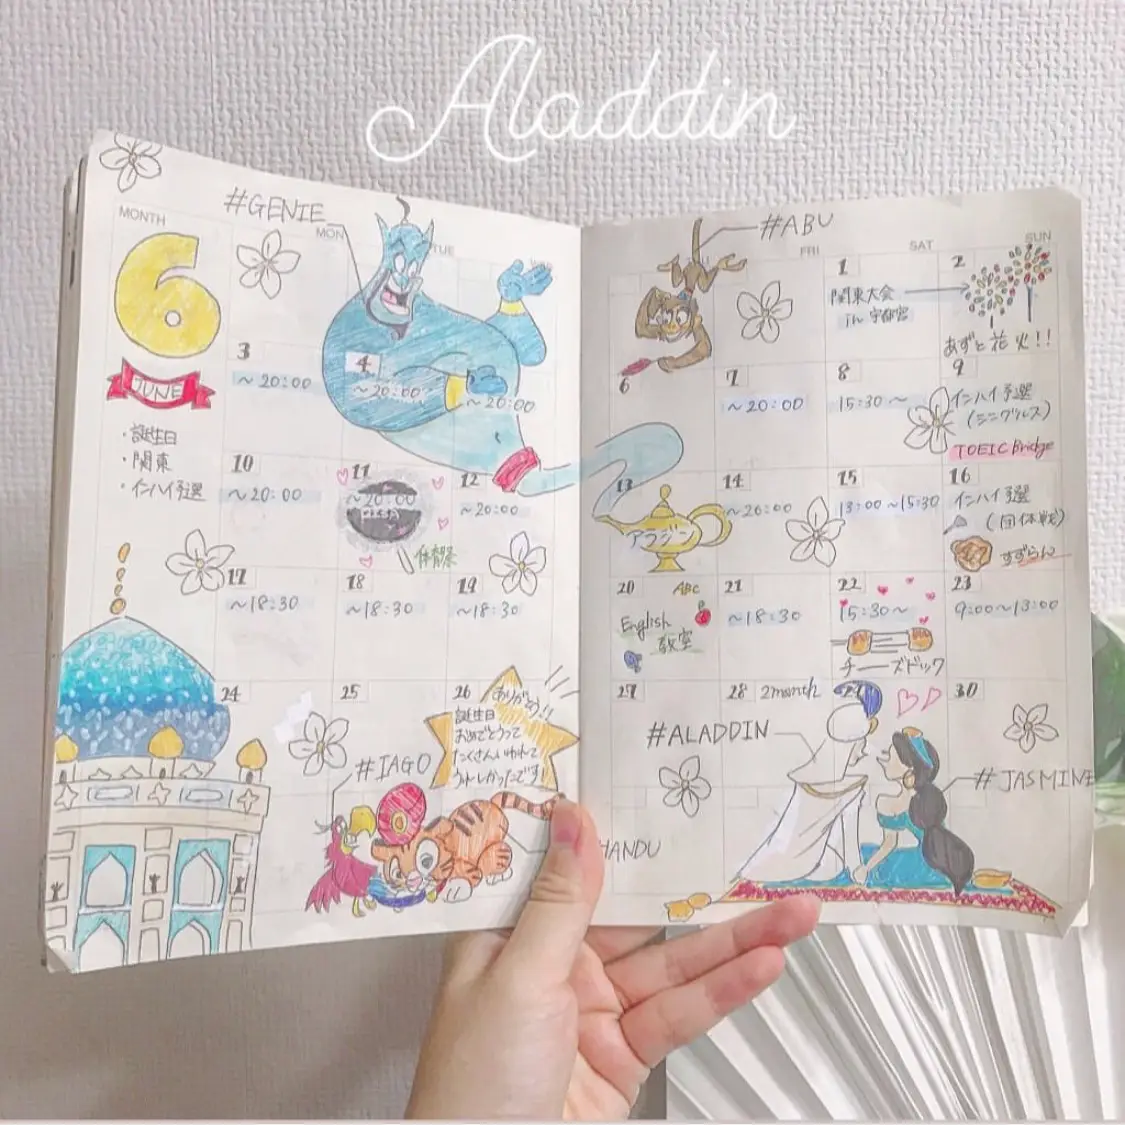 Aladdin
#GENIE
MONTH
MON
TUE
6
JUNE
・誕生日
・関東
・インハイ予選
3
~20:00
4
~20:00
~20:00
10
~20:00
11
~20:00
体育祭
12
~20:00
17
~18:30
18
~18:30
19
~18:30
24
25
26
ありがとう!!
誕生日
おめでとうって
たくさんいわれて
うれしかったです!
#IAGO
#ABU
FRI
SAT
SUN
1
関東大会
in 宇都宮
2
あずと花火!!
6
7
~20:00
8
15:30~
9
インハイ予選
(シングルス)
TOEIC Bridge
13
アラジン
14
~20:00
15
13:00~15:30
16
インハイ予選
(団体戦)
すずらん
20
ABC
English
教室
21
~18:30
22
15:30~
チーズドック
23
9:00~13:00
27
28 2month
29
30
#ALADDIN
#JASMINE
HANDU